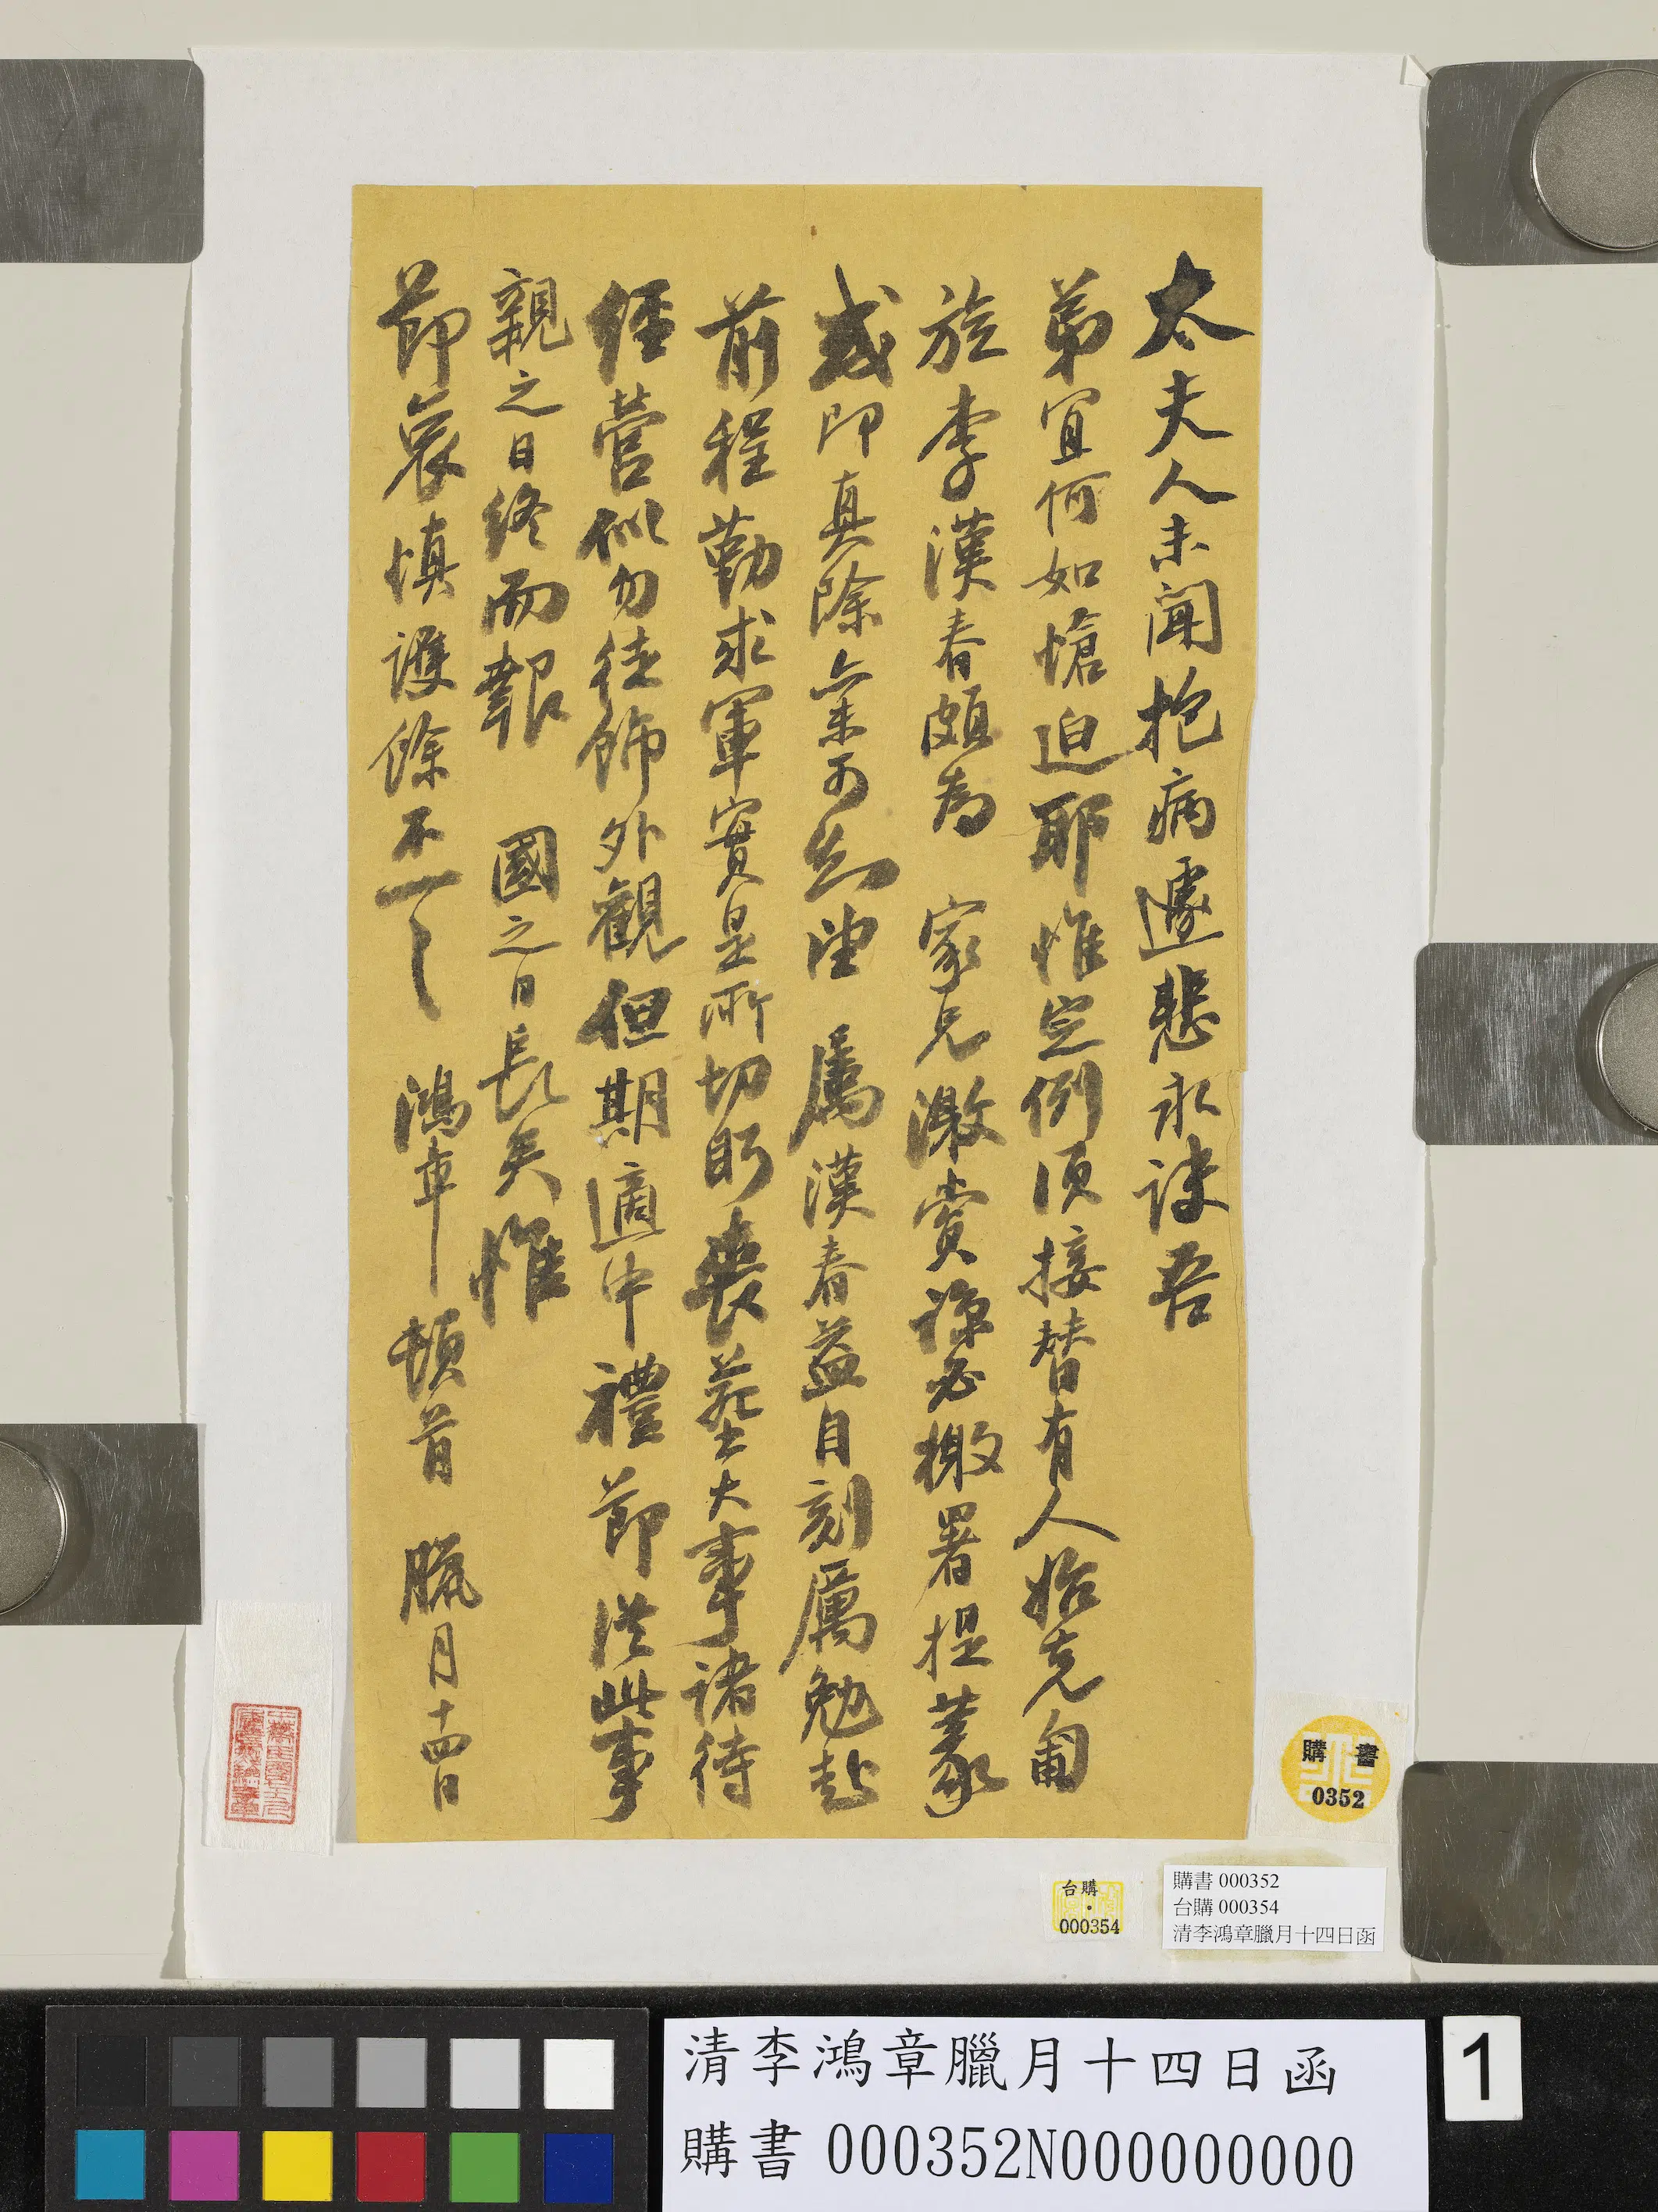 太夫人未聞抱病遽悲永訣吾
弟宜何如愴迫耶惟定例須接替有人始克匍
旋李漢春頗為 家兄激賞諒必檄署提篆
或即真除亦未可知望 屬漢春益自刻厲勉赴
前程勤求軍實是所切盼喪葬大事諸待
經營似勿徒飾外觀但期適中禮節從此事
親之日終而報 國之日長矣惟
節哀慎護餘不一一 鴻章頓首 臘月十四日
購書
0352
台購
000354
購書 000352
台購 000354
清李鴻章臘月十四日函
清李鴻章臘月十四日函
購書 000352N000000000
1